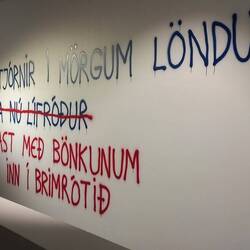 TJÓRNIR Í MÖRGUM LÖNDU
A NÚ LÍFRÓÐUR
AST MEÐ BÖNKUNUM
INN Í BRIMRÓTIÐ